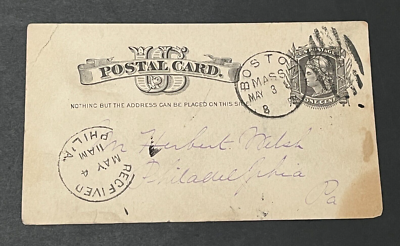 U S
POSTAL CARD.
NOTHING BUT THE ADDRESS CAN BE PLACED ON THIS SIDE
BOSTON
MASS
MAY 3
8
POSTAGE
ONE CENT
Herbert Welsh
Philadelphia
Pa
RECEIVED
MAY 4
11 AM
PHIL'A